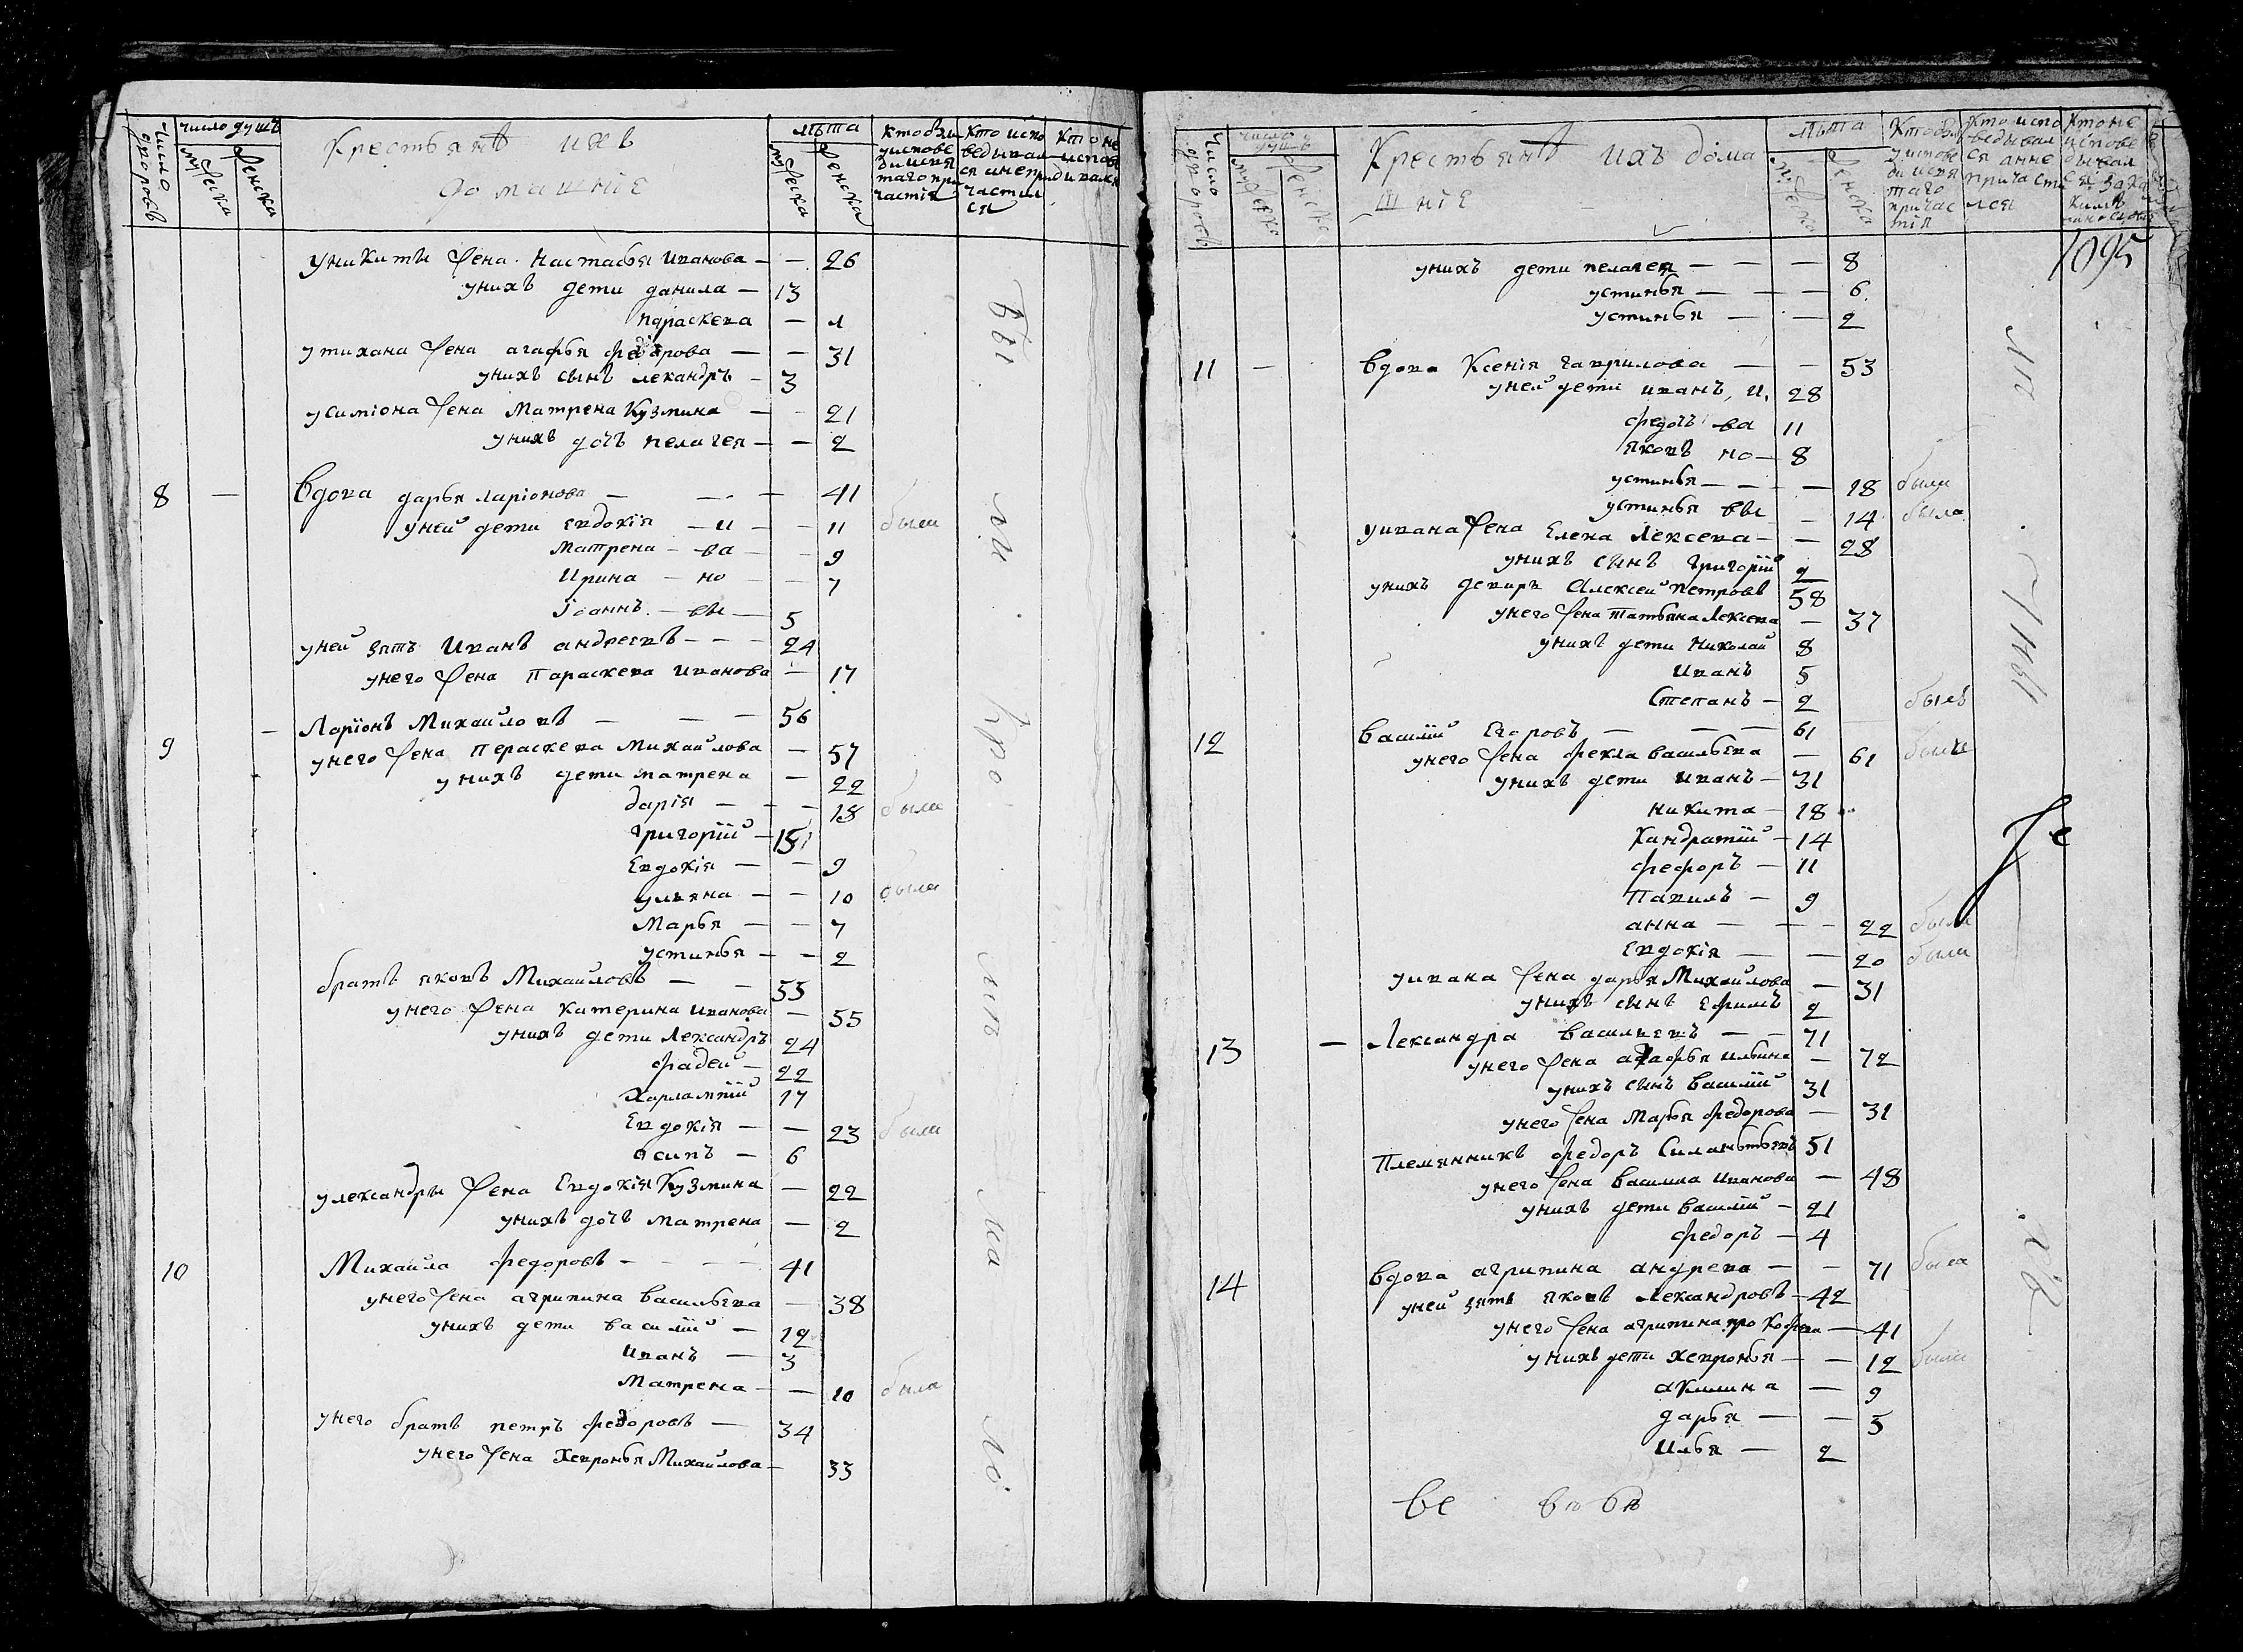 число дворовъ
число душъ
мужеска
женска
Крестьянъ ихъ
домашнїе
лѣта
мужеска
женска
кто был
у испове
ди и свя
таго при
частїя
кто испо
ведывал
ся и не при
частил
ся
кто не
испове
дывался
у никиты жена настасья иванова — — 26
у нихъ дети данила — 13
параскева — 1
у тихана жена агафья федорова — — 31
у нихъ сынъ лександръ — 3
у симїона жена матрена кузмина — — 21
у нихъ дочь пелагея — — 2
8 — вдова дарья ларїонова — — — 41
у ней дети евдокїя — и — — 11 была
матрена — ва — — 9
ирина — но — — 7
їоаннъ — вы — 5
у ней зять иванъ андреевъ — — — 24
у него жена параскева иванова — 17
9 — Ларїонъ Михайловъ — — — 56
у него жена пераскева михайлова — 57
у нихъ дети матрена — 22
дарїя — — — 18 была
григорїй — 15
евдокїя — — 9
ульяна — — 10 была
марья — — 7
устинья — — 2
братъ яковъ Михайловъ — — 55
у него жена катерина иванова — 55
у нихъ дети лександръ 24
фадей — 22
харлампїй 17
евдокїя — — 23 была
осипъ — 6
у лександры жена евдокїя кузмина — 22
у нихъ дочь матрена — 2
10 Михаила федоровъ — — — — 41
у него жена агрипина васильева — 38
у нихъ дети василїй — 12
иванъ — 3
матрена — — 10 была
у него братъ петръ федоровъ — 34
у него жена хевронья Михайлова — 33
число дворовъ
число душъ
мужеска
женска
Крестьянъ ихъ дома
шнїе
лѣта
женска
кто был
у испове
ди и свя
таго
причас
тїя
кто испо
ведывал
ся а не
причасти
лся
кто не
испове
дывал
1095
у нихъ дети пелагея — — — 8
устинья — — — 6
устинья — — 2
11 — вдова Ксенїя гаврилова — — 53
у ней дети иванъ, и. 28
федотъ ва 11
яковъ но — 8
устинья — — — 18 была
устинья вы — 14 была
у ивана жена елена лексеева — — 28
у нихъ сынъ григорїй 2
у нихъ деверь алексей петровъ 58
у него жена татьяна лексеева — 37
у нихъ дети николай 8
иванъ 5
степанъ — 2
12 василїй егоровъ — — — 61
у него жена фекла васильева — 61
у нихъ дети иванъ — 31
никита — 18
кандратїй — 14
федоръ — 11
павилъ — 9
анна — — — 22 была
евдокїя — — 20 была
у ивана жена дарья Михайлова — 31
у нихъ сынъ ефимъ 2
13 — Лександра васильевъ — — 71
у него жена агафья ильина — 72
у нихъ сынъ василїй 31
у него жена марья федорова — 31
племянникъ федоръ 51
у него жена василиса иванова — 48
у нихъ дети василїй — 21
федоръ — 4
14 вдова агрипина андрева — — 71 была
у ней зять яковъ лександровъ — 42
у него жена агрипина — 41
у нихъ дети хевронья — — 12 была
акилина — 9
дарья — — 5
илья — 2